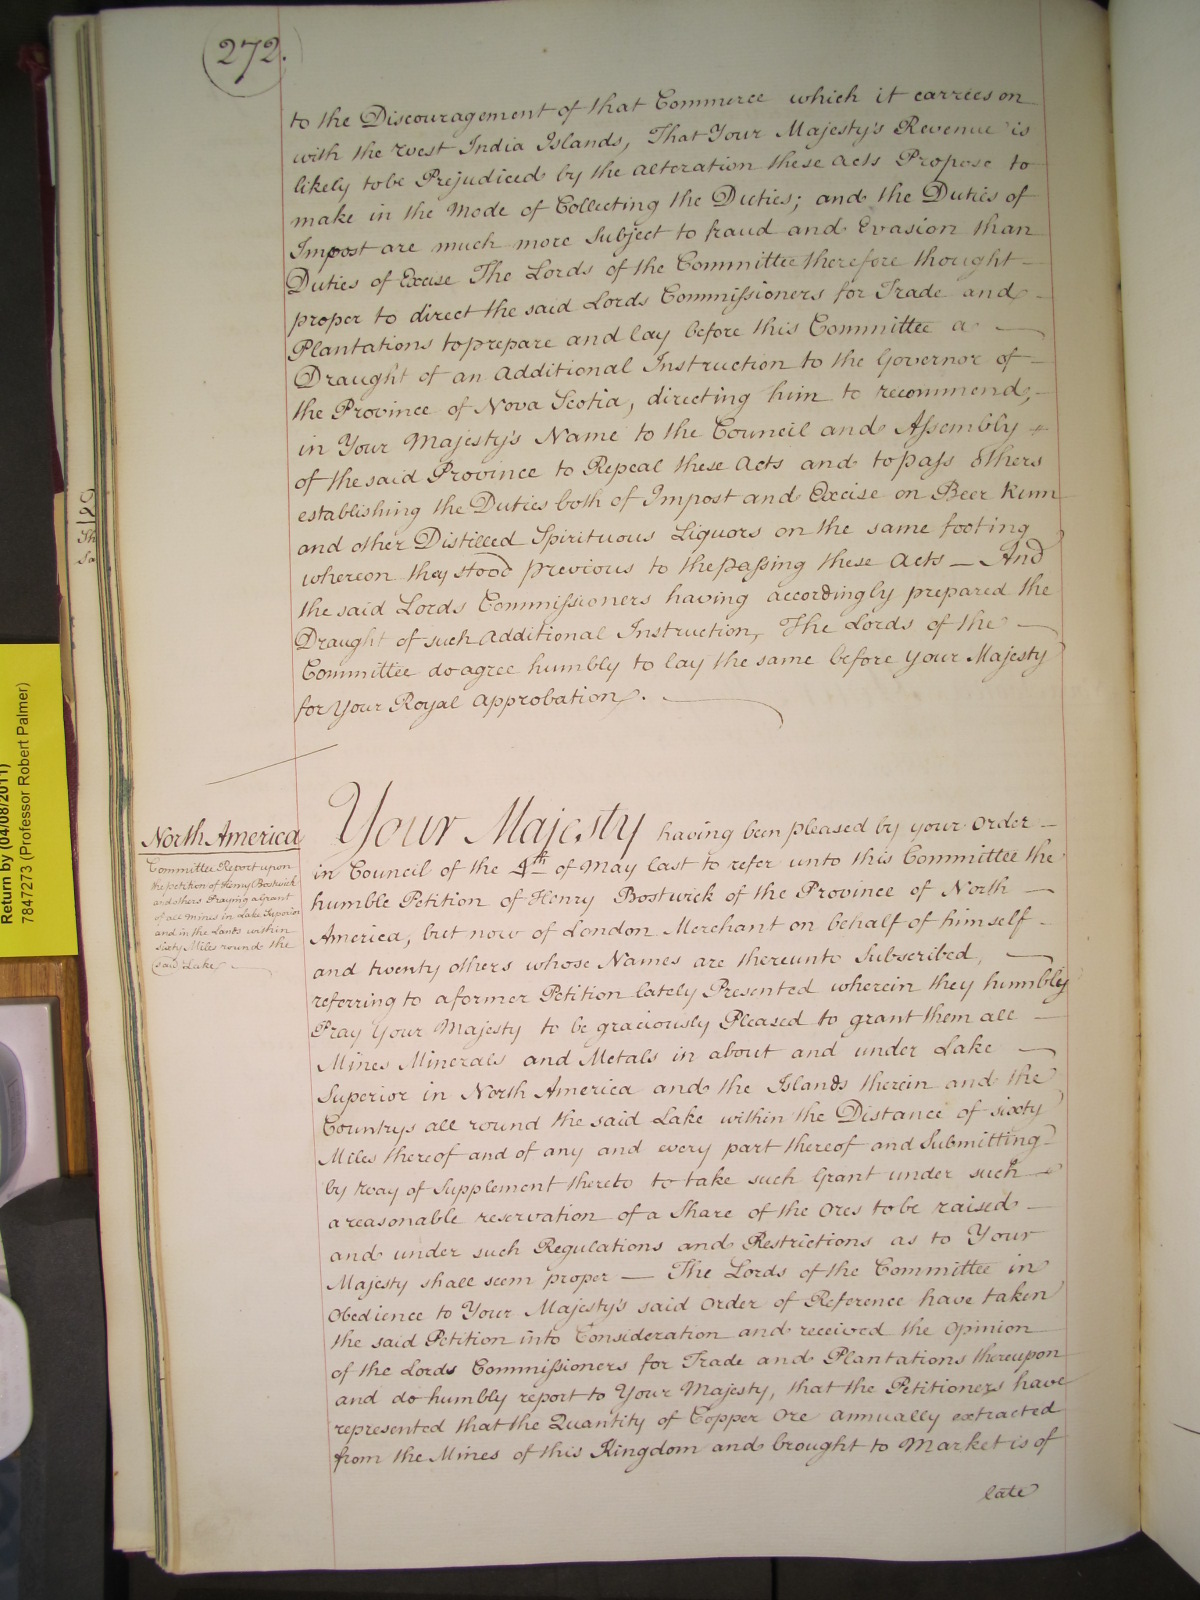 272.
to the Discouragement of that Commerce which it carries on
with the West India Islands, That Your Majesty's Revenue is
likely to be Prejudiced by the alteration these Acts Propose to
make in the Mode of Collecting the Duties; and the Duties of
Impost are much more Subject to fraud and Evasion than
Duties of Excise The Lords of the Committee therefore thought
proper to direct the said Lords Commissioners for Trade and
Plantations to prepare and lay before this Committee a
Draught of an Additional Instruction to the Governor of
the Province of Nova Scotia, directing him to recommend,
in Your Majesty's Name to the Council and Assembly
of the said Province to Repeal these Acts and to pass others
establishing the Duties both of Impost and Excise on Beer Rum
and other Distilled Spirituous Liquors on the same footing
whereon they stood previous to the passing these Acts — And
the said Lords Commissioners having accordingly prepared the
Draught of such Additional Instruction, The Lords of the
Committee do agree humbly to lay the same before Your Majesty
for Your Royal Approbation.
North America
Committee Report upon
the petition of Henry Bostwick
and others Praying a Grant
of all mines in Lake Superior
and in the Lands within
Sixty Miles round the
said Lake
Your Majesty having been pleased by your Order
in Council of the 4th of May last to refer unto this Committee the
humble Petition of Henry Bostwick of the Province of North
America, but now of London Merchant on behalf of himself
and twenty others whose Names are thereunto Subscribed,
referring to a former Petition lately Presented wherein they humbly
Pray Your Majesty to be graciously Pleased to grant them all
Mines Minerals and Metals in about and under Lake
Superior in North America and the Islands therein and the
Countrys all round the said Lake within the Distance of sixty
Miles thereof and of any and every part thereof and Submitting
by way of Supplement thereto to take such Grant under such
a reasonable reservation of a Share of the Ores to be raised
and under such Regulations and Restrictions as to Your
Majesty shall seem proper — The Lords of the Committee in
Obedience to Your Majesty's said Order of Reference have taken
the said Petition into Consideration and received the Opinion
of the Lords Commissioners for Trade and Plantations thereupon
and do humbly report to Your Majesty, that the Petitioners have
represented that the Quantity of Copper Ore annually extracted
from the Mines of this Kingdom and brought to Market is of
late
Return by (04/08/2011)
7847273 (Professor Robert Palmer)